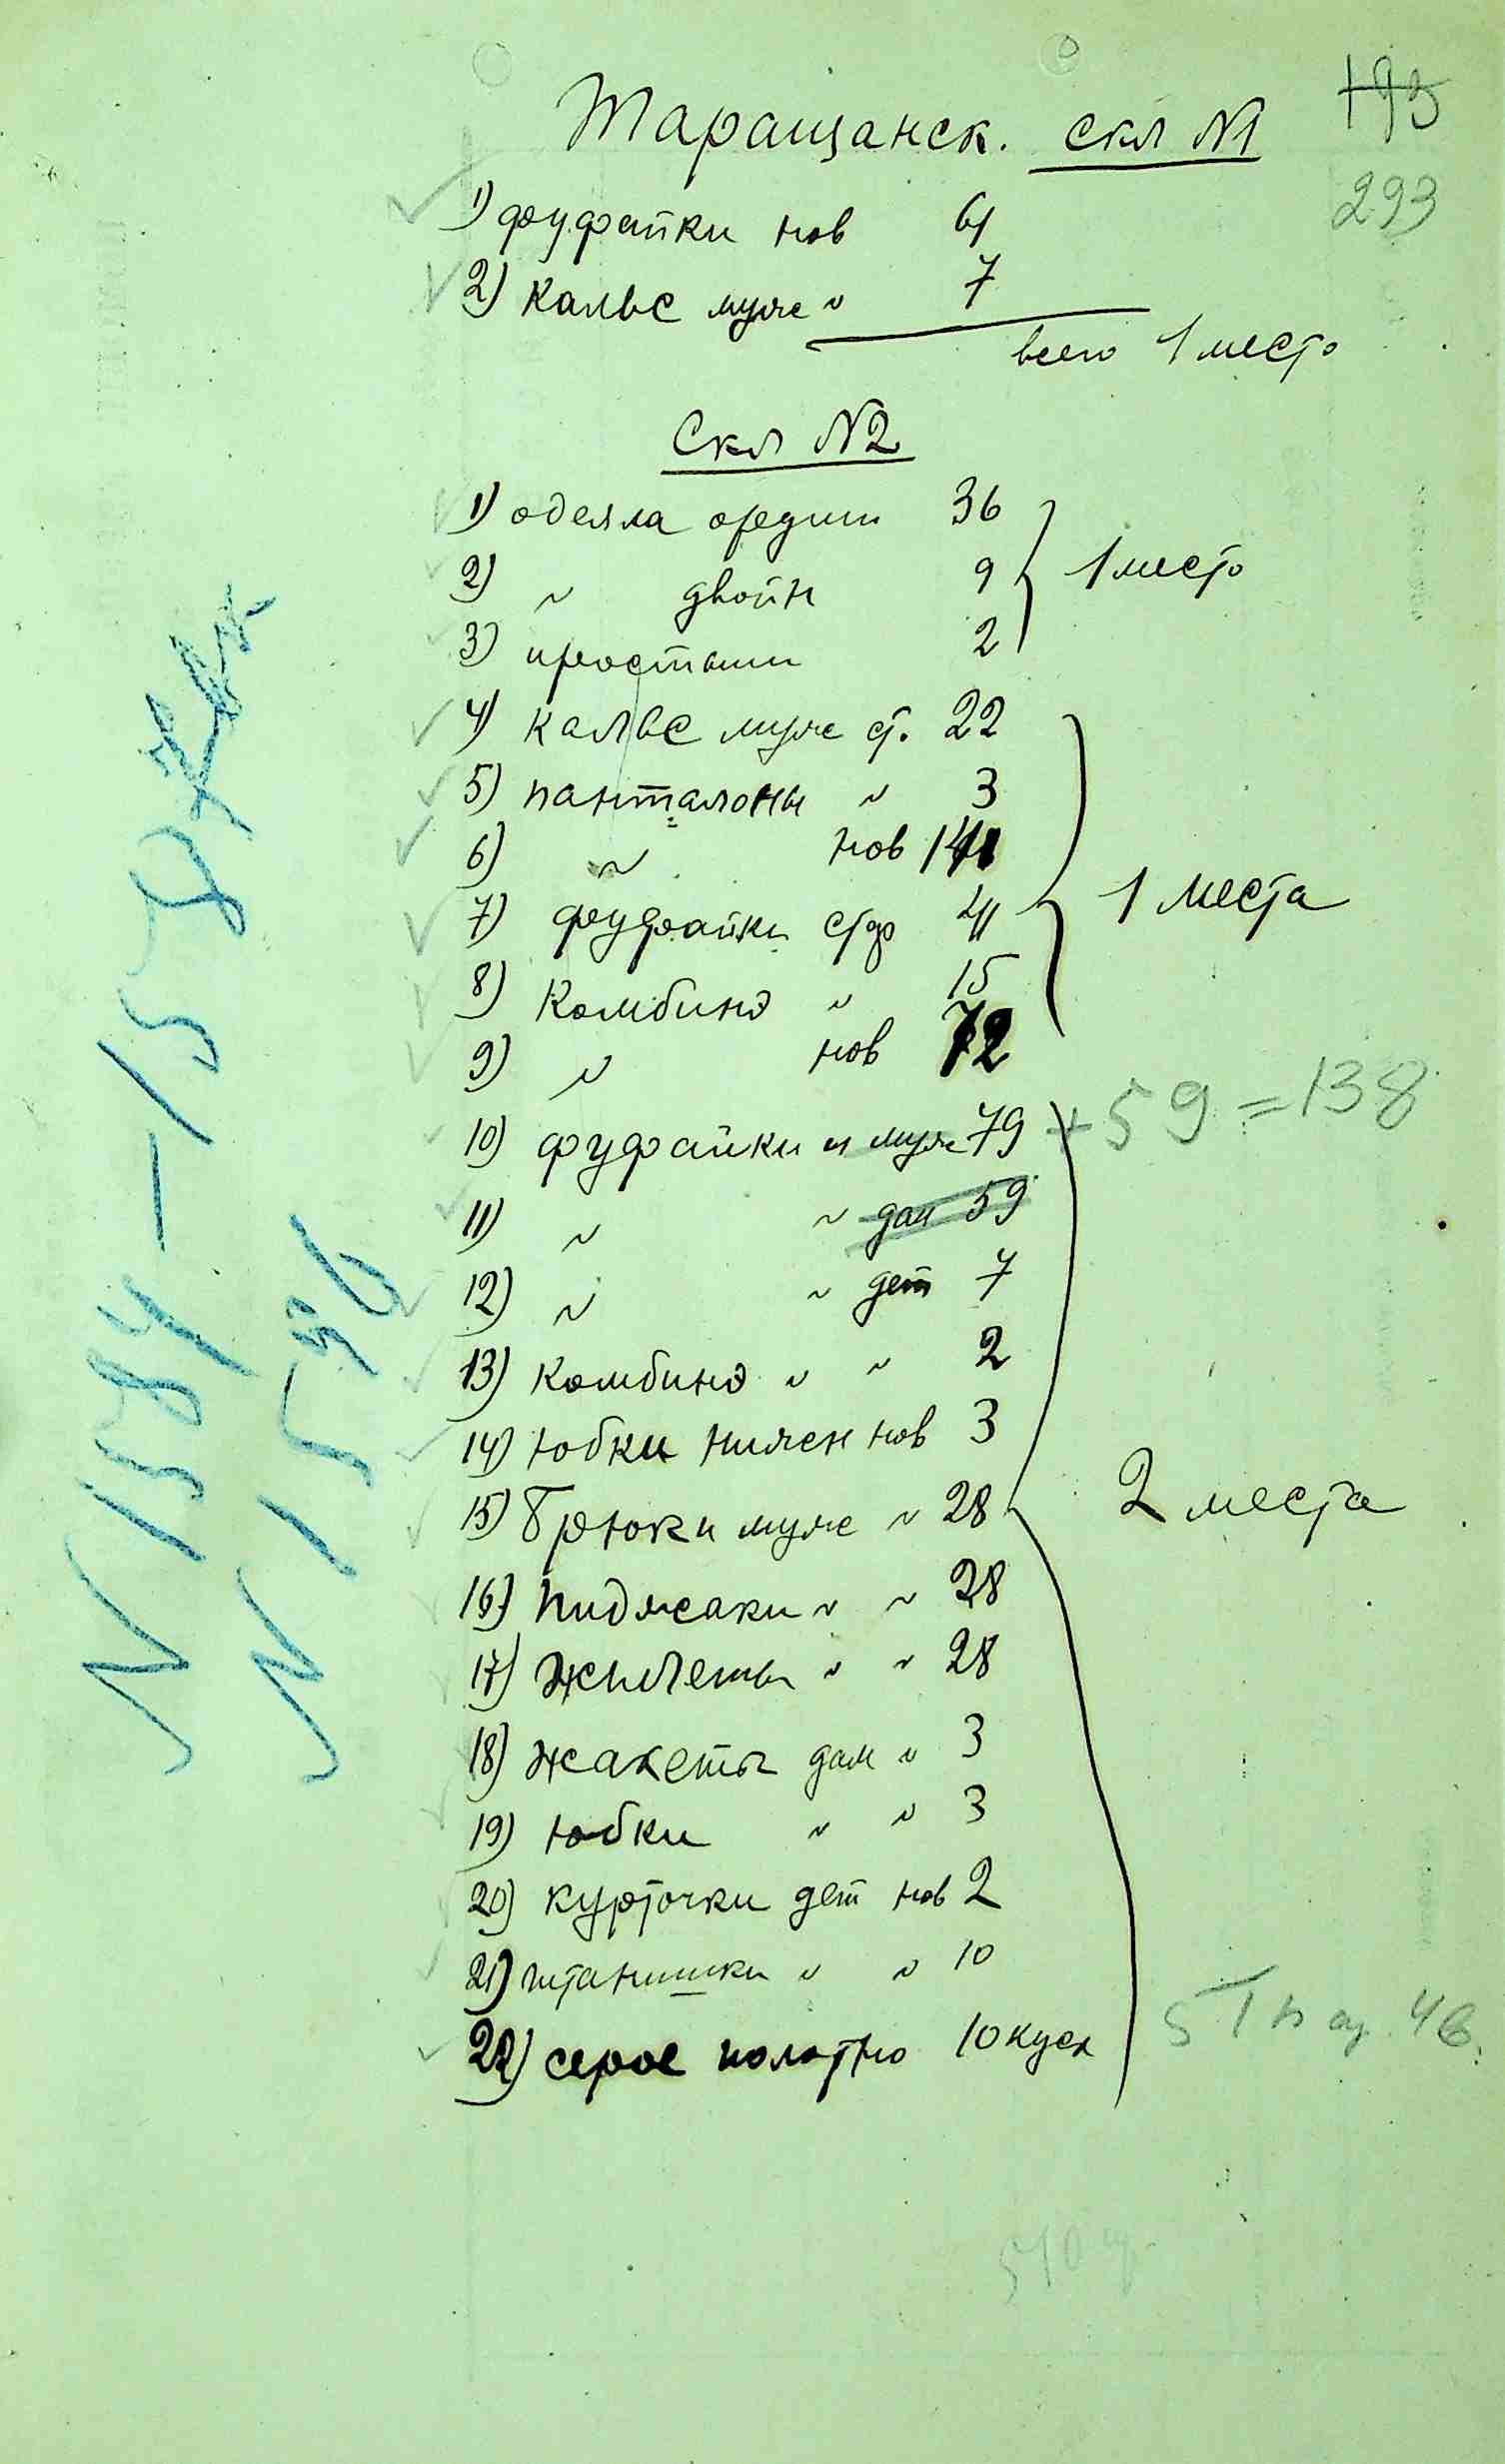 Таращанск. скл N1
193
293
1) фуфайки нов 61
2) кальс муж " 7
всего 1 место
Скл N2
1) одеяла один 36
2) " двойн 9
1 место
3) простыни 2
4) кальс муж ст. 22
5) панталоны " 3
6) " нов 141
7) фуфайки ст дф 41
1 места
8) Комбинэ " 15
9) " нов 72
10) фуфайки н муж 79 + 59 = 138
11) " " дам 59
12) " " дет 7
13) Комбинэ " " 2
14) юбки нижен нов 3
15) Брюки муж " 28
2 места
16) Пиджаки " " 28
17) Жилеты " " 28
18) Жакеты дам " 3
19) юбки " " 3
20) курточки дет нов 2
21) штанишки " " 10
22) серое полотно 10 куск
N 1584 - 15
N 1596